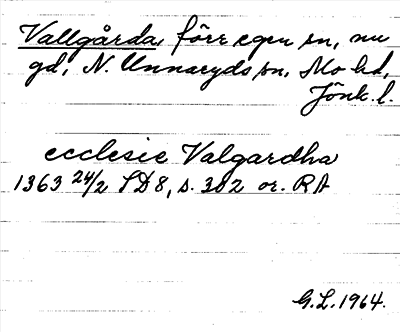 Vallgårda, förr egen sn, nu
gd, N. Unnaryds sn, Mo hd,
Jönk. l.
ecclesie Valgardha
1363 24/2 SD 8, s. 302 or. RA
G.L. 1964.